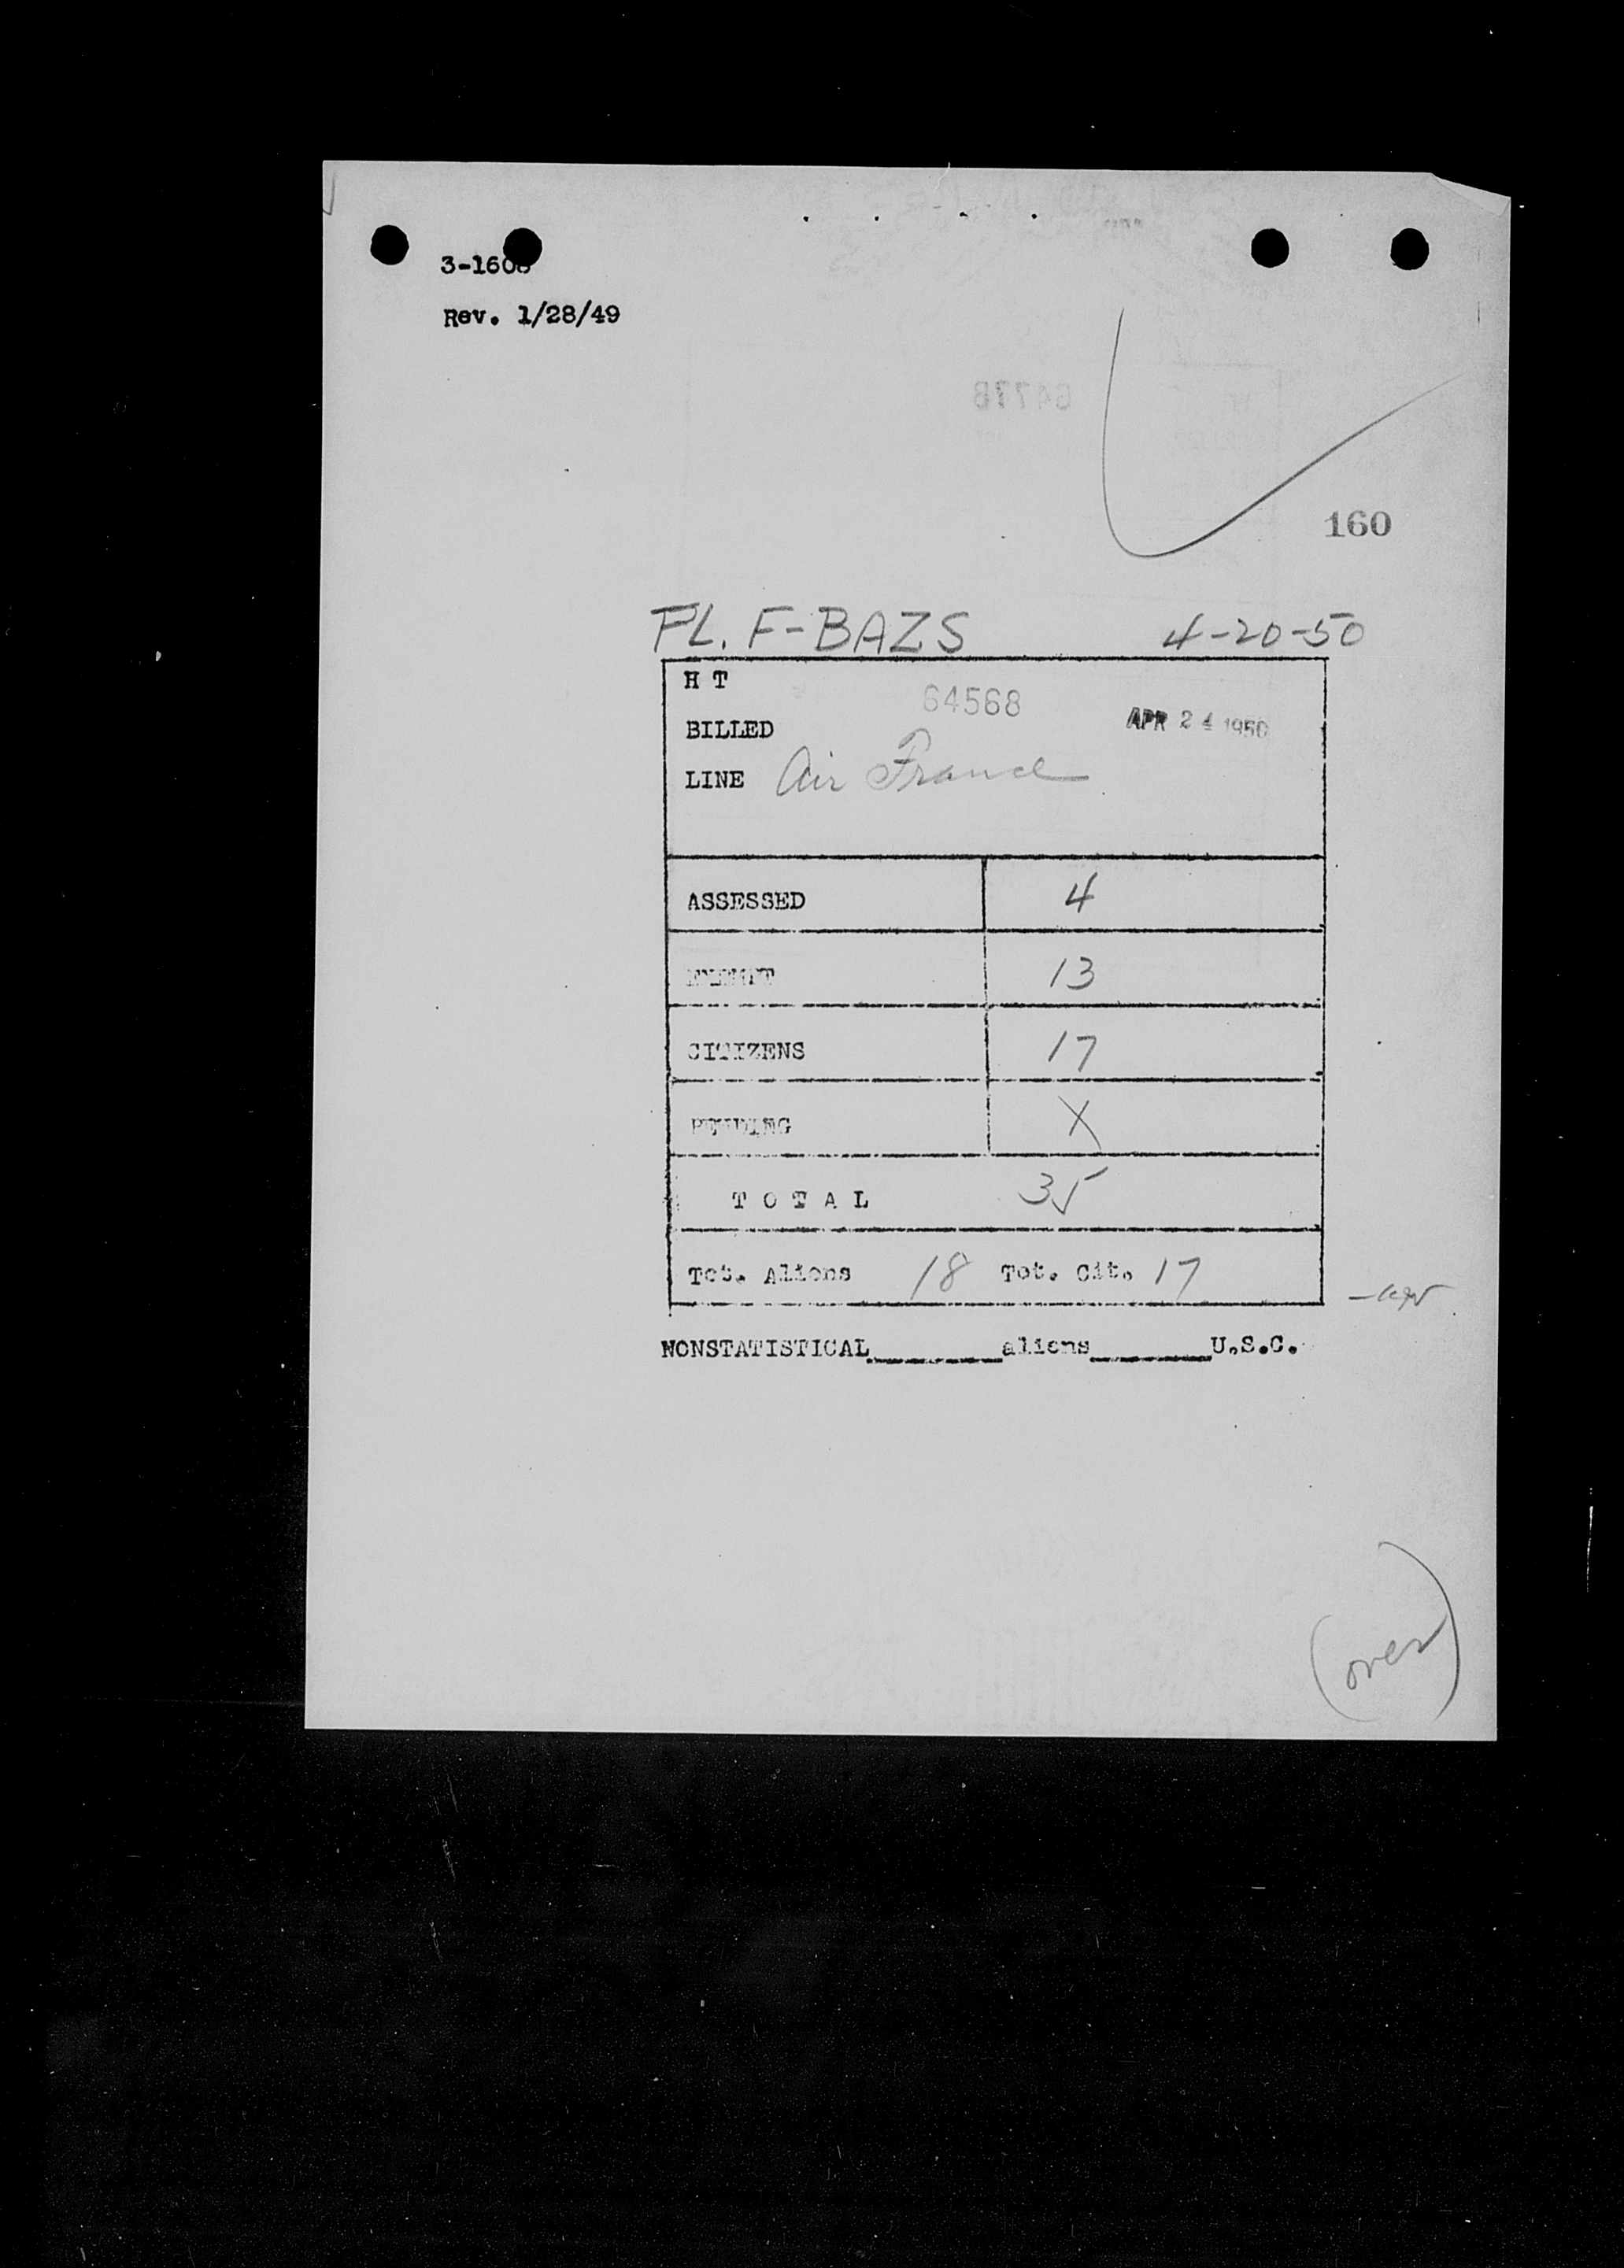 Rev. 1/28/49
160
FL. F-BAZS 4-20-50
H T
64568
BILLED APR 24 1950
LINE Air France
ASSESSED 4
EXEMPT 13
CITIZENS 17
PENDING X
TOTAL 35
Tot. Aliens 18 Tot. Cit. 17
NONSTATISTICAL________aliens________U.S.C.
(over)